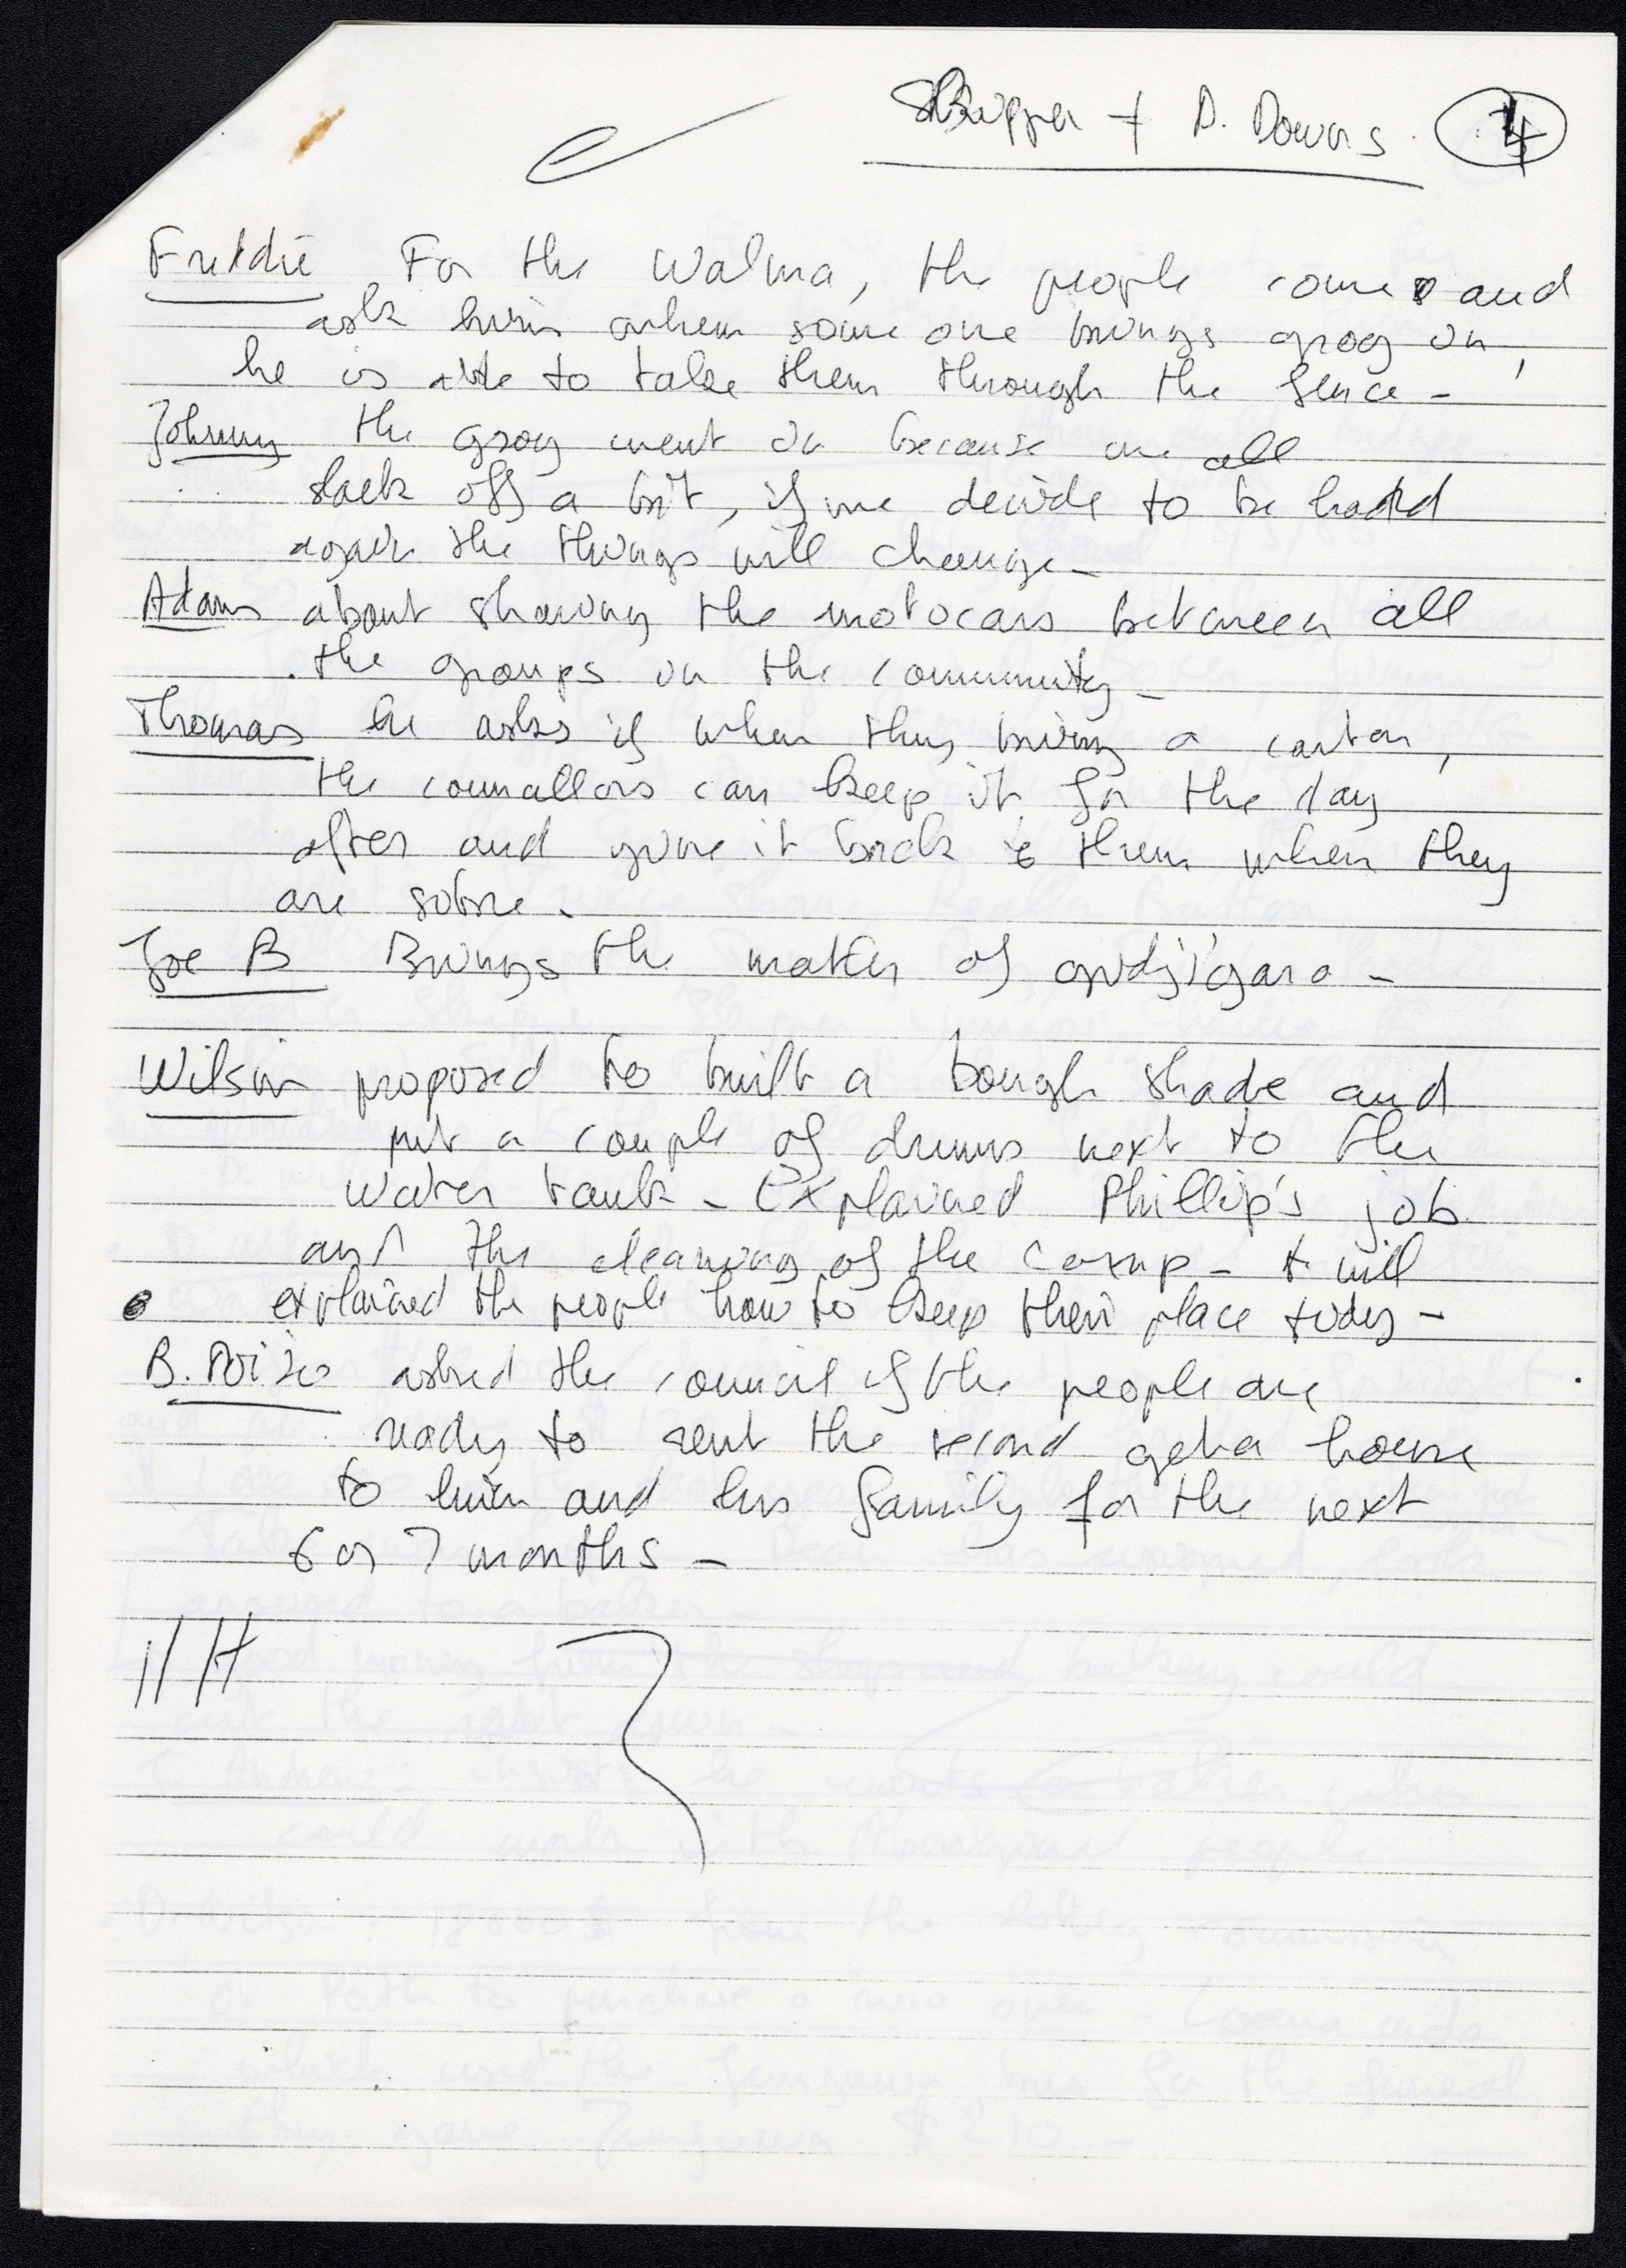 Skipper + D. Downs. 4
Freddie For the Walma, the people come and
ask him when some one brings grog in,
he is able to take them through the fence -
Johnny the grog went in because we all
slack off a bit, if we decide to be hard
again the things will change -
Adam about sharing the motocars between all
the groups in the community -
Thomas he asks if when they bring a carton,
the councallors can keep it for the day
after and give it back to them when they
are sobre.
Joe B Brings the matter of gidjigara -
Wilson proposed to built a bough shade and
put a couple of drums next to the
water tank - Explained Phillip's job
and the cleaning of the camp - + will
explained the people how to keep their place tidy -
B. asked the council if the people are
ready to rent the second geha house
to him and his family for the next
6 or 7 months -